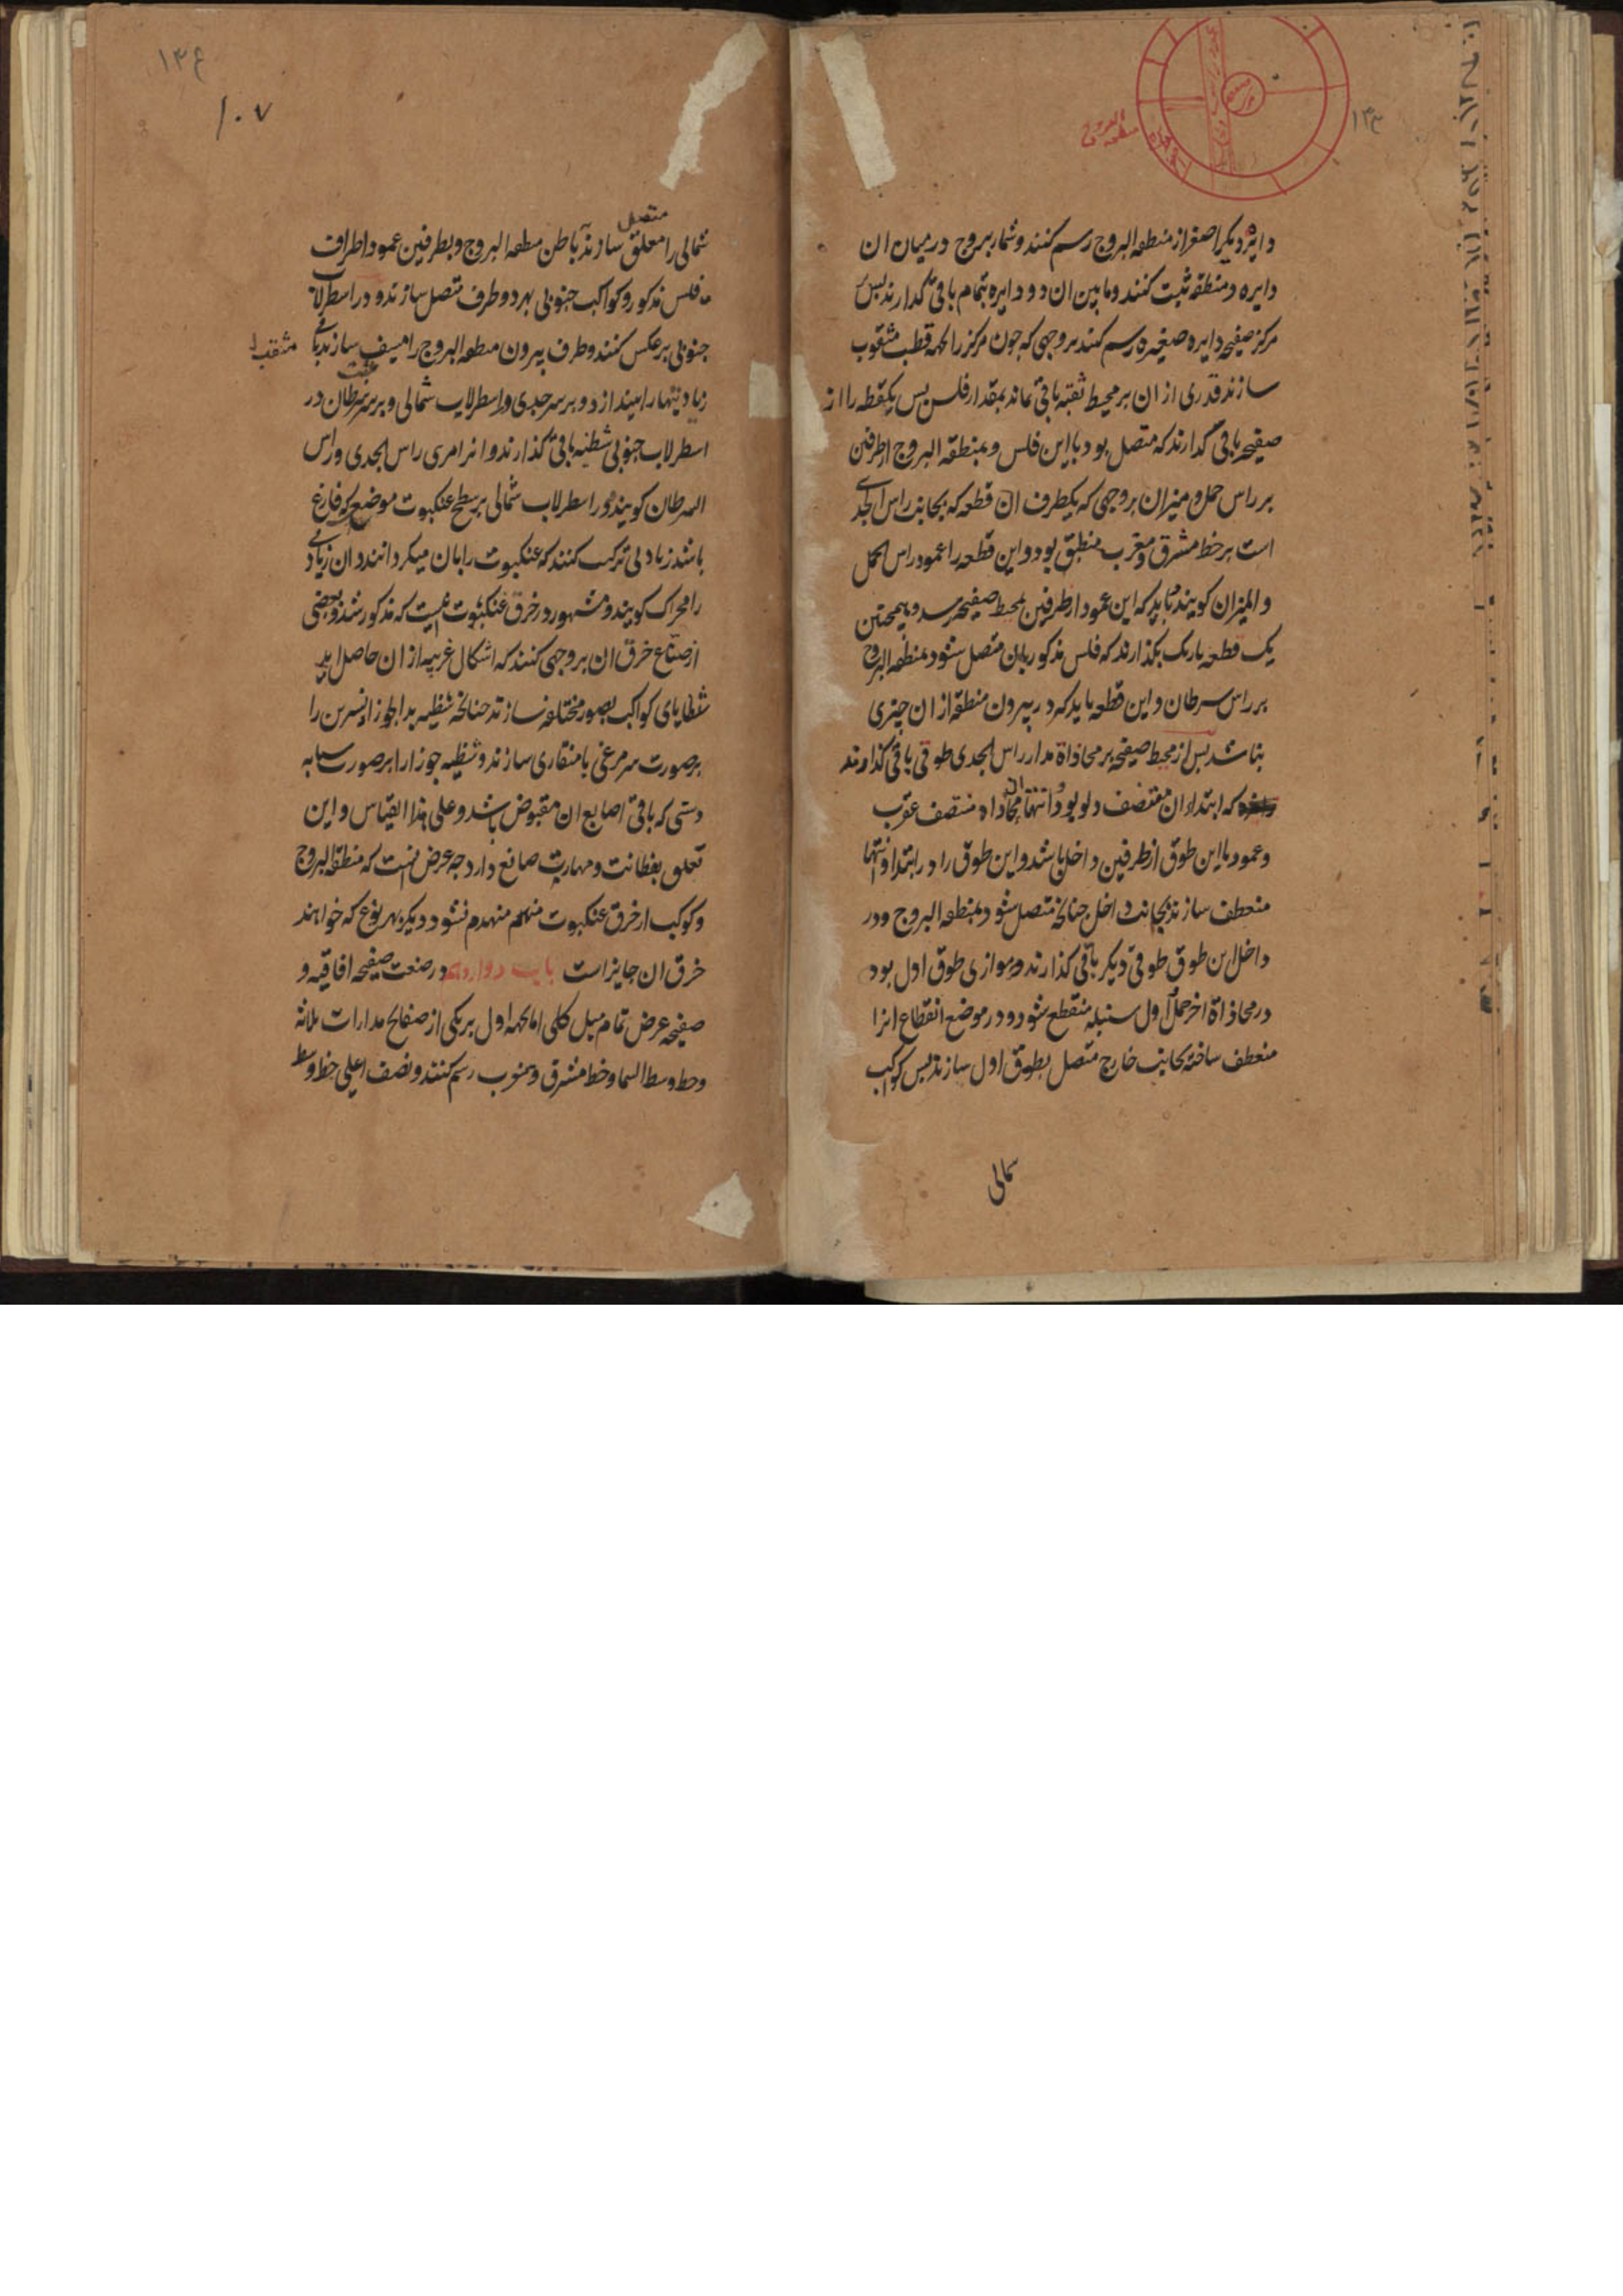 دایره دیکر اصغر از منطقه البروج رسم کنند و شمار بروج در میان ان
دایره و منطقه ثبت کنند و مابین ان دو دایره بتمام باقی گذارند پس
مرکز صفیحه دایره صغیره رسم کنند بروجهی که چون مرکز را بجهه قطب مثقوب
سازند قدری از ان بر محیط ثقبه باقی ماند بمقدار فلس پس یکقطعه را از
صفیحه باقی گذارند که متصل بود باین فلس و بمنطقه البروج از طرفین
بر راس حمل و میزان بروجهی که یکطرف ان قطعه که بجانب راس الجدی
است بر خط مشرق و مغرب منطبق بود و این قطعه را عمود راس الحمل
و المیزان کویند و باید که این عمود از طرفین بمحیط صفیحه رسد و همچنین
یک قطعه باریک بکذارند که فلس مذکور بان متصل شود بمنطقه البروج
بر راس سرطان و این قطعه باید که در بیرون منطقه از ان چیزی
نباشد پس از محیط صفیحه بر محاذاة مدار راس الجدی طوقی باقی گذارند
که ابتداء ان منتصف دلو بود و انتها ان محاذاه منتصف عقرب
و عمود با این طوق از طرفین داخل باشد و این طوق را در ابتدا و انتها
منعطف سازند بجانب داخل چنانکه متصل شود بمنطقه البروج و در
داخل این طوق طوقی دیکر باقی کذارند و موازی طوق اول بود
در محاذاة اخر حمل و اول سنبله منقطع شود و در موضع انقطاع انرا
منعطف ساخته بجانب خارج متصل بطوق اول سازند پس کواکب
شمالی
۱۰۷
متصل
شمالی را معلق سازند با طن منطقه البروج و بطرفین عمود و اطراف
فلس مذکور و کواکب جنوبی بهر دو طرف متصل سازند و در اسطرلاب
جنوبی بر عکس کنند و طرف بیرون منطقه البروج را سازند باقی
زیادتیها را بیندازد و بر سر جدی در اسطرلاب شمالی و بر سر سرطان در
اسطرلاب جنوبی شظیه باقی گذارند و انرا مری راس الجدی و راس
السرطان کویند و در اسطرلاب شمالی بر سطح عنکبوت موضعی که فارغ
باشد زیادتی ترکیب کنند که عنکبوت را بان میکردانند و ان زیادتی
را محرک کویند و مشهور در خرق عنکبوت اینست که مذکور شد و بعضی
از صناع خرق ان بروجهی کنند که اشکال غریبه از ان حاصل اید
شظایای کواکب بصور مختلفه سازند چنانکه شظیه ید الجوزا و نسرین را
بر صورت سر مرغی با منقاری سازند و شظیه جوزا را بر صورت سبابه
دستی که باقی اصابع ان مقبوض باشد و علی هذا القیاس و این
تعلق بفطانت و مهارت صانع دارد چه عرض انست که منطقة البروج
و کوکب از خرق عنکبوت منهدم نشود دیکر بهر نوع که خواهند
خرق ان جایز است باب دوازدهم در صنعت صفیحه افاقیه و
صفیحه عرض تمام میل کلی اما بجهه اول بر یکی از صفایح مدارات ثلاثه
و خط وسط السما و خط مشرق و مغرب رسم کنند و نصف اعلی خط وسط